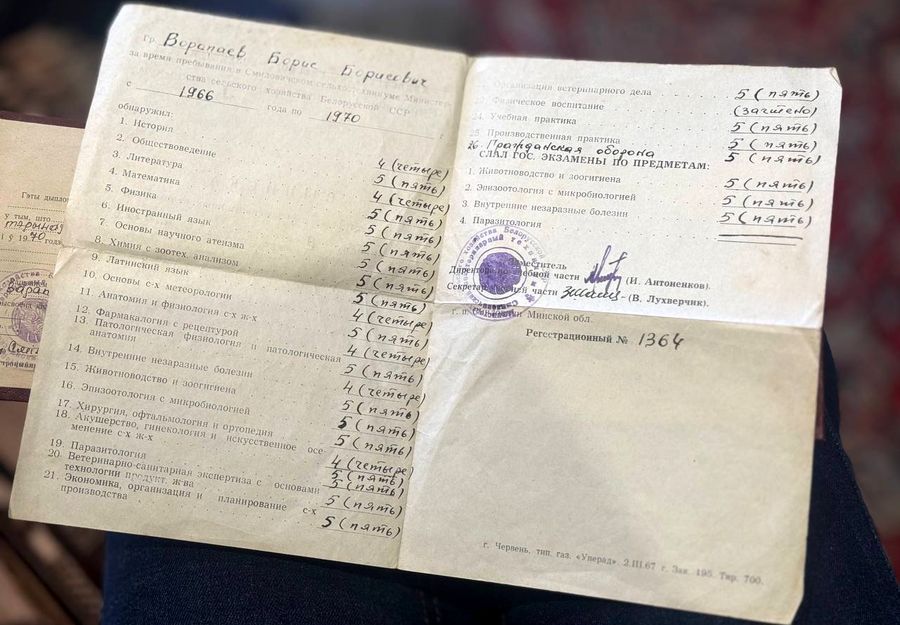 гр. Варапаев Борис Борисович
за время пребывания в Смиловичском сельхозтехникуме Министер-
ства сельского хозяйства Белорусской ССР
с 1966 года по 1970
обнаружил:
1. История
2. Обществоведение
3. Литература
4. Математика
5. Физика
6. Иностранный язык
7. Основы научного атеизма
8. Химия с зоотех. анализом
9. Латинский язык
10. Основы с-х метеорологии
11. Анатомия и физиология с-х ж-х
12. Фармакалогия с рецептурой
13. Патологическая физиология и патологическая
анатомия
14. Внутренние незаразные болезни
15. Животноводство и зоогигиена
16. Эпизоотология с микробиологией
17. Хирургия, офтальмология и ортопедия
18. Акушерство, гинекология и искусственное осе-
менение с-х ж-х
19. Паразитология
20. Ветеринарно-санитарная экспертиза с основами
технологии продукт. ж-ва
21. Экономика, организация и планирование с-х
производства
4 (четыре)
5 (пять)
4 (четыре)
5 (пять)
5 (пять)
5 (пять)
5 (пять)
5 (пять)
5 (пять)
4 (четыре)
5 (пять)
4 (четыре)
5 (пять)
4 (четыре)
5 (пять)
5 (пять)
5 (пять)
4 (четыре)
5 (пять)
5 (пять)
5 (пять)
5 (пять)
Организация ветеринарного дела 5 (пять)
Физическое воспитание (зачтено)
24. Учебная практика 5 (пять)
25. Производственная практика 5 (пять)
26. Гражданская оборона 5 (пять)
СДАЛ ГОС. ЭКЗАМЕНЫ ПО ПРЕДМЕТАМ:
1. Животноводство и зоогигиена 5 (пять)
2. Эпизоотология с микробиологией 5 (пять)
3. Внутренние незаразные болезни 5 (пять)
4. Паразитология 5 (пять)
Заместитель
Директора по учебной части (И. Антоненков).
Секретарь учебной части (В. Лухверчик).
Минской обл.
Регестрационный № 1364
г. Червень, тип. газ. «Уперад». 2.III.67 г. Зак. 195. Тир. 700.